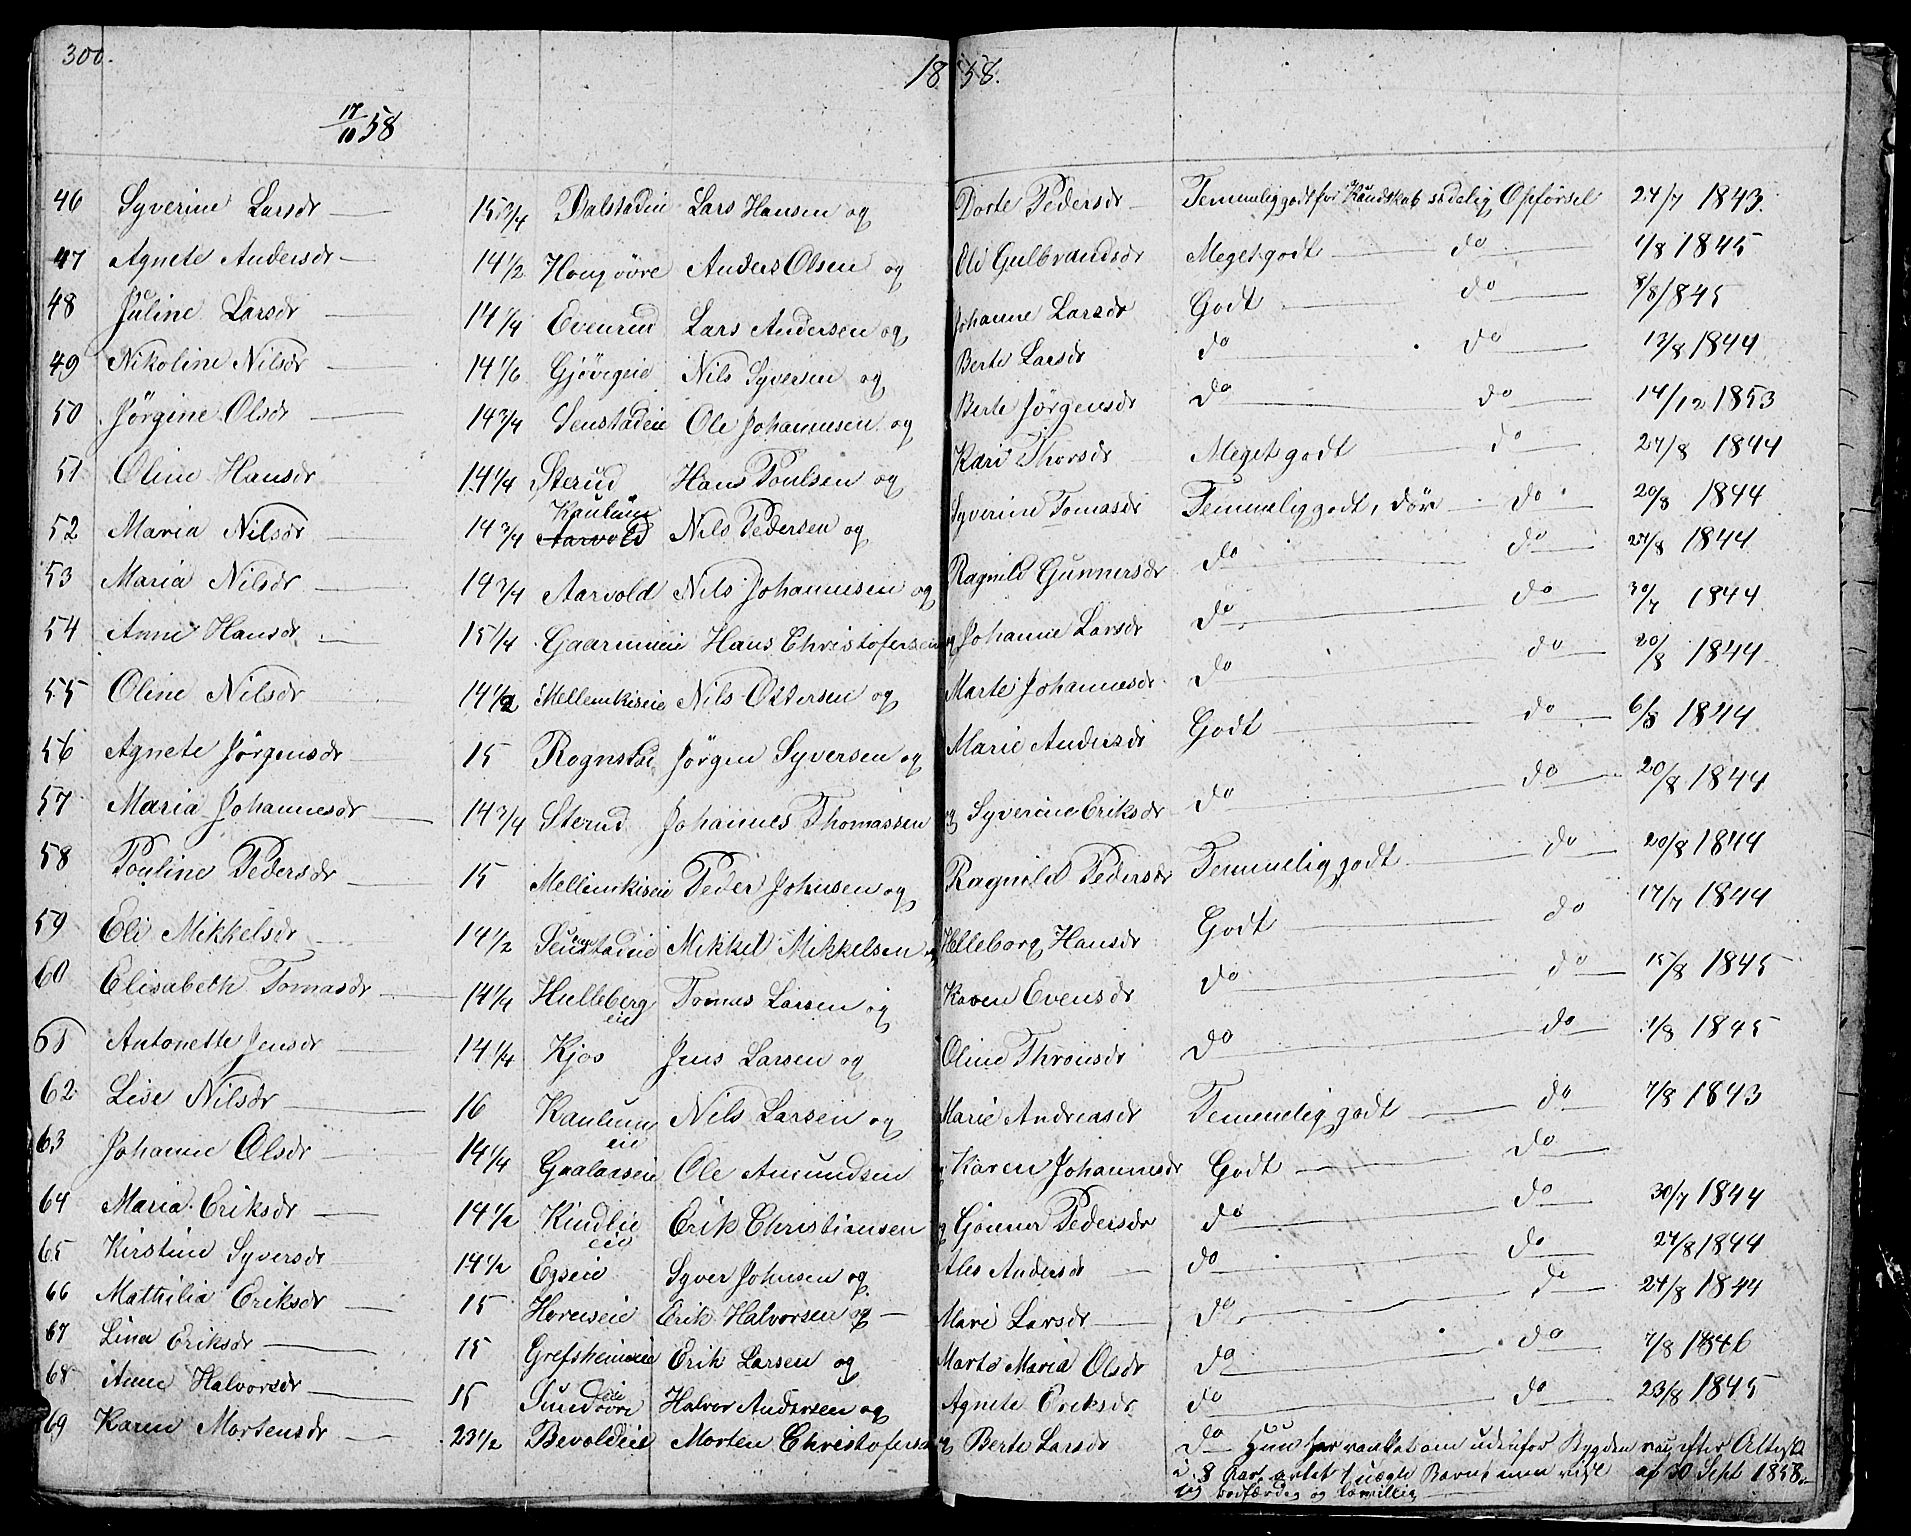 300.
1858.
17/10 58
46 Syverine Larsdr 15 3/4 Dalstadeie Lars Hansen og Dorte Pedersdr Temmelig godt for Kundskab sædelig Opførsel 24/7 1843.
47 Agnete Andersdr 14 1/2 Anders Olsen og Eli Gulbrandsdr Meget godt do 1/8 1845
48 Juline Larsdr 14 1/4 Evenrud Lars Andersen og Johanne Larsdr Godt do 8/8 1845
49 Nikoline Nilsdr 14 1/6 Gjøvigeie Nils Syversen og Berte Larsdr do do 13/8 1844
50 Jørgine Olsdr 14 3/4 Senstadeie Ole Johannesen og Berte Jørgensdr do do 14/12 1853
51 Oline Hansdr 14 1/4 Sterud Hans Poulsen og Kari Thorsdr Meget godt do 27/8 1844
52 Maria Nilsdr 14 3/4 Kaulum Aarvold Nils Pedersen og Syverine Tomasdr Temmelig godt, do 20/8 1844
53 Maria Nilsdr 14 3/4 Aarvold Nils Johannesen og Ragnild Gunnersdr do do 27/8 1844
54 Anne Hansdr 15 1/4 Hans Christofersen og Johanne Larsdr do do 30/7 1844
55 Oline Nilsdr 14 1/2 Mellemkiseie Nils Ottersen og Marte Johannesdr do do 20/8 1844
56 Agnete Jørgensdr 15 Rognstad Jørgen Syversen og Marie Andersdr Godt do 6/8 1844
57 Maria Johannesdr 14 3/4 Sterud Johannes Thomassen og Syverine Eriksdr do do 20/8 1844
58 Pouline Pedersdr 15 Mellemkiseie Peder Johnsen og Ragnild Pedersdr Temmelig godt do 20/8 1844
59 Eli Mikkelsdr 14 1/2 Senstadeie Mikkel Mikkelsen og Helleborg Hansdr Godt do 17/7 1844
60 Elisabeth Tomasdr 14 1/4 Hulleberg eie Tomas Larsen og Karen Evensdr do do 15/8 1845
61 Antonette Jensdr 14 1/4 Kjos Jens Larsen og Oline Thronsdr do do 1/8 1845
62 Lise Nilsdr 16 Kaulum eie Nils Larsen og Marie Andreasdr Temmelig godt do 7/8 1843
63 Johanne Olsdr 14 1/4 Gaalaaseie Ole Amundsen og Karen Johannesdr Godt do
64 Maria Eriksdr 14 1/2 Kindlie eie Erik Christiansen og Gonnor Pedersdr do do 30/7 1844
65 Kirstine Syversdr 14 1/2 Egseie Syver Johnsen og Ales Andersdr do do 27/8 1844
66 Mathilia Eriksdr 15 Horneseie Erik Halvorsen og Mari Larsdr do do 27/8 1844
67 Lina Eriksdr 15 Grefsheimeie Erik Larsen og Marte Maria Olsdr do do 7/8 1846
68 Anne Halvorsdr 15 eie Halvor Andersen og Agnete Eriksdr do do 23/8 1845
69 Karen Mortensdr 23 1/2 Bevoldeie Morten Christofersen og Berte Larsdr do Hun har vanket om udenfor Bygden efter Attest
i 8 Aar, avlet 1 uægte Barn men af 30 Sept 1858.
og lærvillig